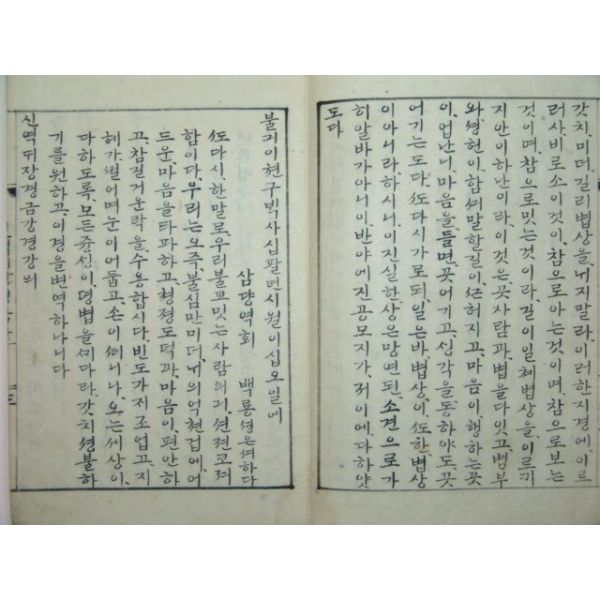 갓치, 미더, 길리법상을, 너지말라, 이러한지경에, 이르
러사비로소이것이, 참으로아는것이며, 참으로보는
것이며, 참으로밋는것이라, 길이일쳬법상을, 이르키
지안이하난니라, 이것은, 꼿사람과, 법을다잇고, 범부
와, 셩현이, 함께말할길이, 끈허지고, 마음이, 행하는곳
이, 업난니, 마음을들면, 꼿어기고, 생각을, 동하야도, 꼿
어기는도다, 또다시가로되, 일은바, 법상이, 또한, 법상
이아니라, 하시니, 이진실한상은, 망련된, 소견으로, 가
히알바가아니, 이반야에, 진공묘지가, 저이에, 다하얏
도다
불긔이쳔구백사십팔년시월이십오일에
삼장역회 백룡셩은셔하다
또다시, 한말로, 우리불교밋는사람의긔, 젼젼코져
함이다, 우리는오즉, 불심만미더, 너의억쳔겁에, 어
드운, 마음을타파하고, 쳥졍도덕과, 마음이, 편안하
고, 참질거운락을수용합시다, 빈도가저조업고, 지
혜가젹어며눈이어둡고, 손이떠니나, 오는세상이,
다하도록, 모든즁싱이, 뎡법을, 떠나라, 갓치셩불하
기를, 원하고, 이경을번역하나니다
신역대장경금강경강의